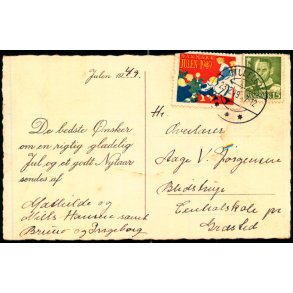 Julen 1949
DANMARK
JULEN 1949
De bedste Ønsker
om en rigtig glædelig
Jul og et godt Nytaar
sendes af
Mathilde og
Nills Hansen samt
Bruno og Ingeborg
Hr
Aage V. Jørgensen
Blidstrup
Centralskole pr
Græsted
15